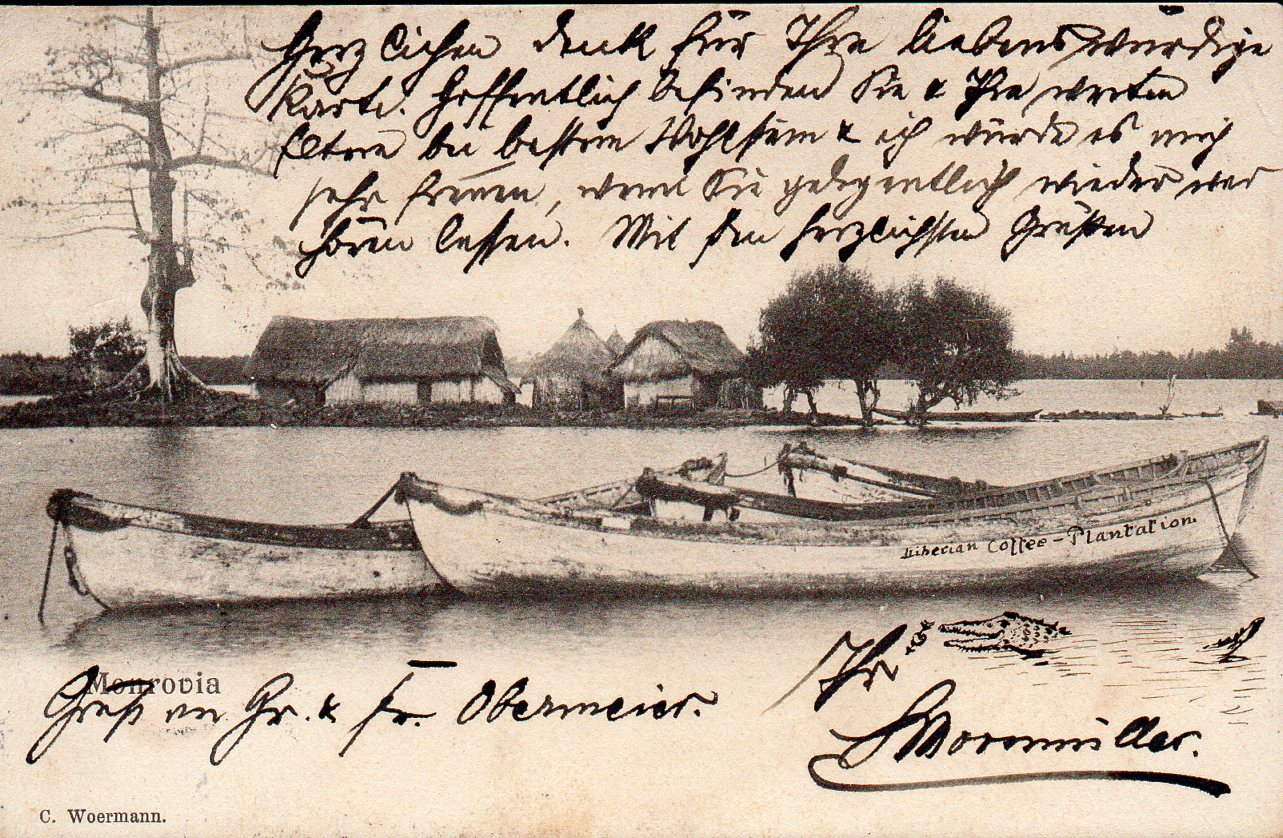 Herzlichen Dank für Ihre liebenswürdige
Karte. Hoffentlich befinden Sie & Ihre werten
Eltern bei bestem Wohlsein & ich würde es mich
sehr freuen, wenn Sie gelegentlich wieder was
hören lassen. Mit den herzlichsten Grüßen
Liberian Coffee-Plantation.
Ihr
Monrovia
Gruß an Hr. & Fr. Obermeier.
C. Woermann.